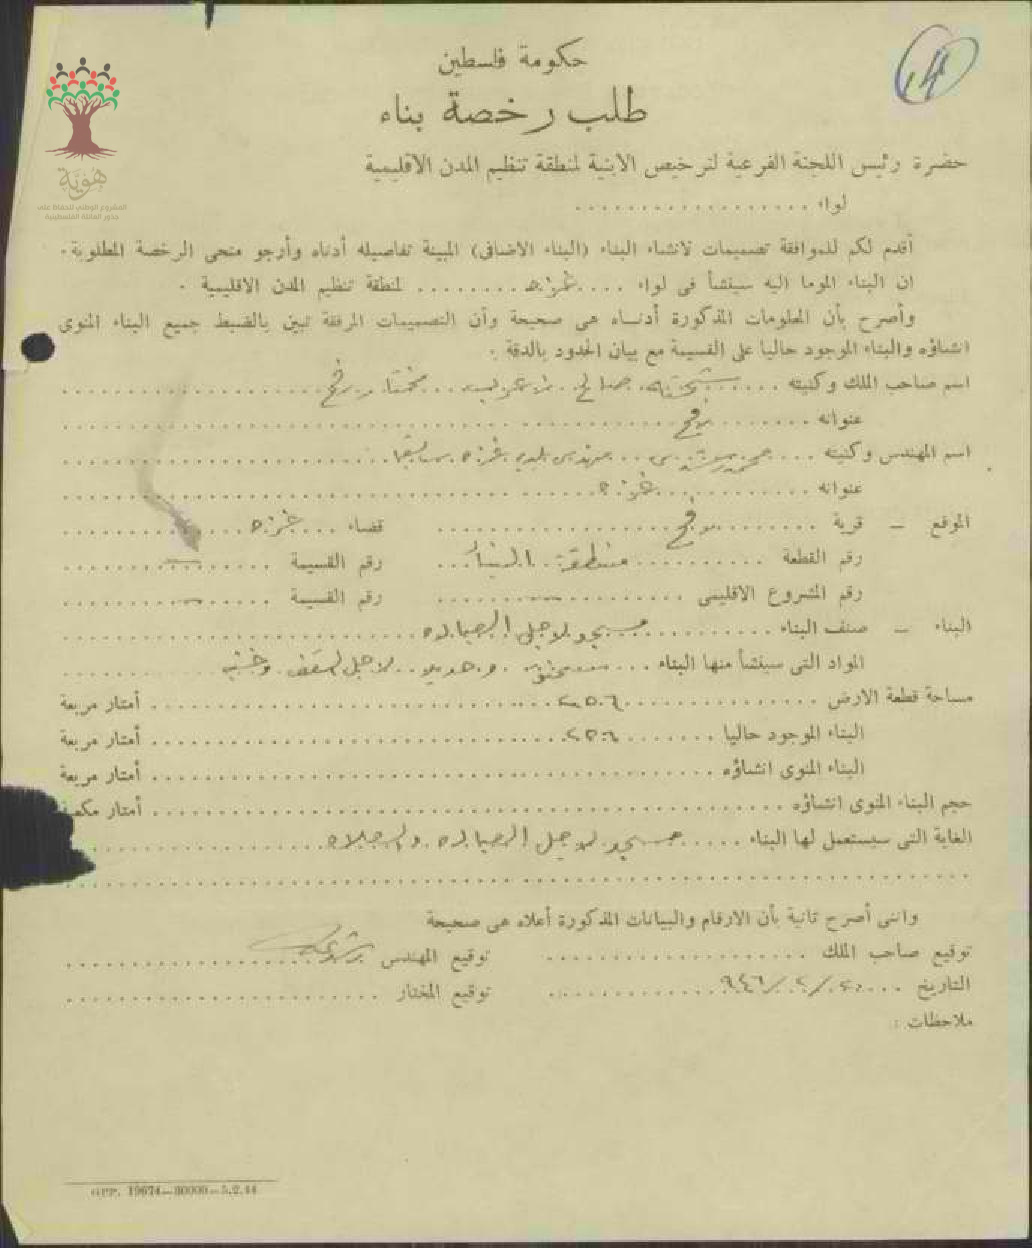 14
حكومة فلسطين
طلب رخصة بناء
هوية
المشروع الوطني للحفاظ على
جذور العائلة الفلسطينية
حضرة رئيس اللجنة الفرعية لترخيص الابنية لمنطقة تنظيم المدن الاقليمية
لواء ..................
أقدم لكم للموافقة تصميمات لانشاء البناء (البناء الاضافى) المبينة تفاصيله أدناه وأرجو منحى الرخصة المطلوبة.
ان البناء الموما اليه سينشأ فى لواء .... غزه ........ لمنطقة تنظيم المدن الاقليمية .
وأصرح بأن المعلومات المذكورة أدناه هى صحيحة وأن التصميمات المرفقة تبين بالضبط جميع البناء المنوى
انشاؤه والبناء الموجود حاليا على القسيمة مع بيان الحدود بالدقة :
اسم صاحب الملك وكنيته .... صالح ... مختار رفح
عنوانه ........ رفح
اسم المهندس وكنيته ... محمد رشدي ... مهندس بلدية غزه سابقا
عنوانه .......... غزه
الموقع – قرية ......... رفح ......... قضاء ... غزه
رقم القطعة .......... منطقة ... رقم القسيمة ...... —
رقم المشروع الاقليمى .......... — ...... رقم القسيمة ...... —
البناء – صنف البناء ......... مسجد لاجل العباده
المواد التى سينشأ منها البناء ... وحديد .. لاجل السقف وخشب
مساحة قطعة الارض ................ ٢٥٠٦ ................ أمتار مربعة
البناء الموجود حاليا ........ ................ أمتار مربعة
البناء المنوى انشاؤه ................................ أمتار مربعة
حجم البناء المنوى انشاؤه ................................ أمتار مكعبة
الغاية التى سيستعمل لها البناء ..... مسجد لاجل العباده والصلاه
وانى أصرح ثانية بأن الارقام والبيانات المذكورة أعلاه هى صحيحة
توقيع صاحب الملك .................... توقيع المهندس رشدي
التاريخ .... ٢٠/٢/٩٤٦ ........ توقيع المختار ....................
ملاحظات :
GPP. 19674—30000—5.2.44